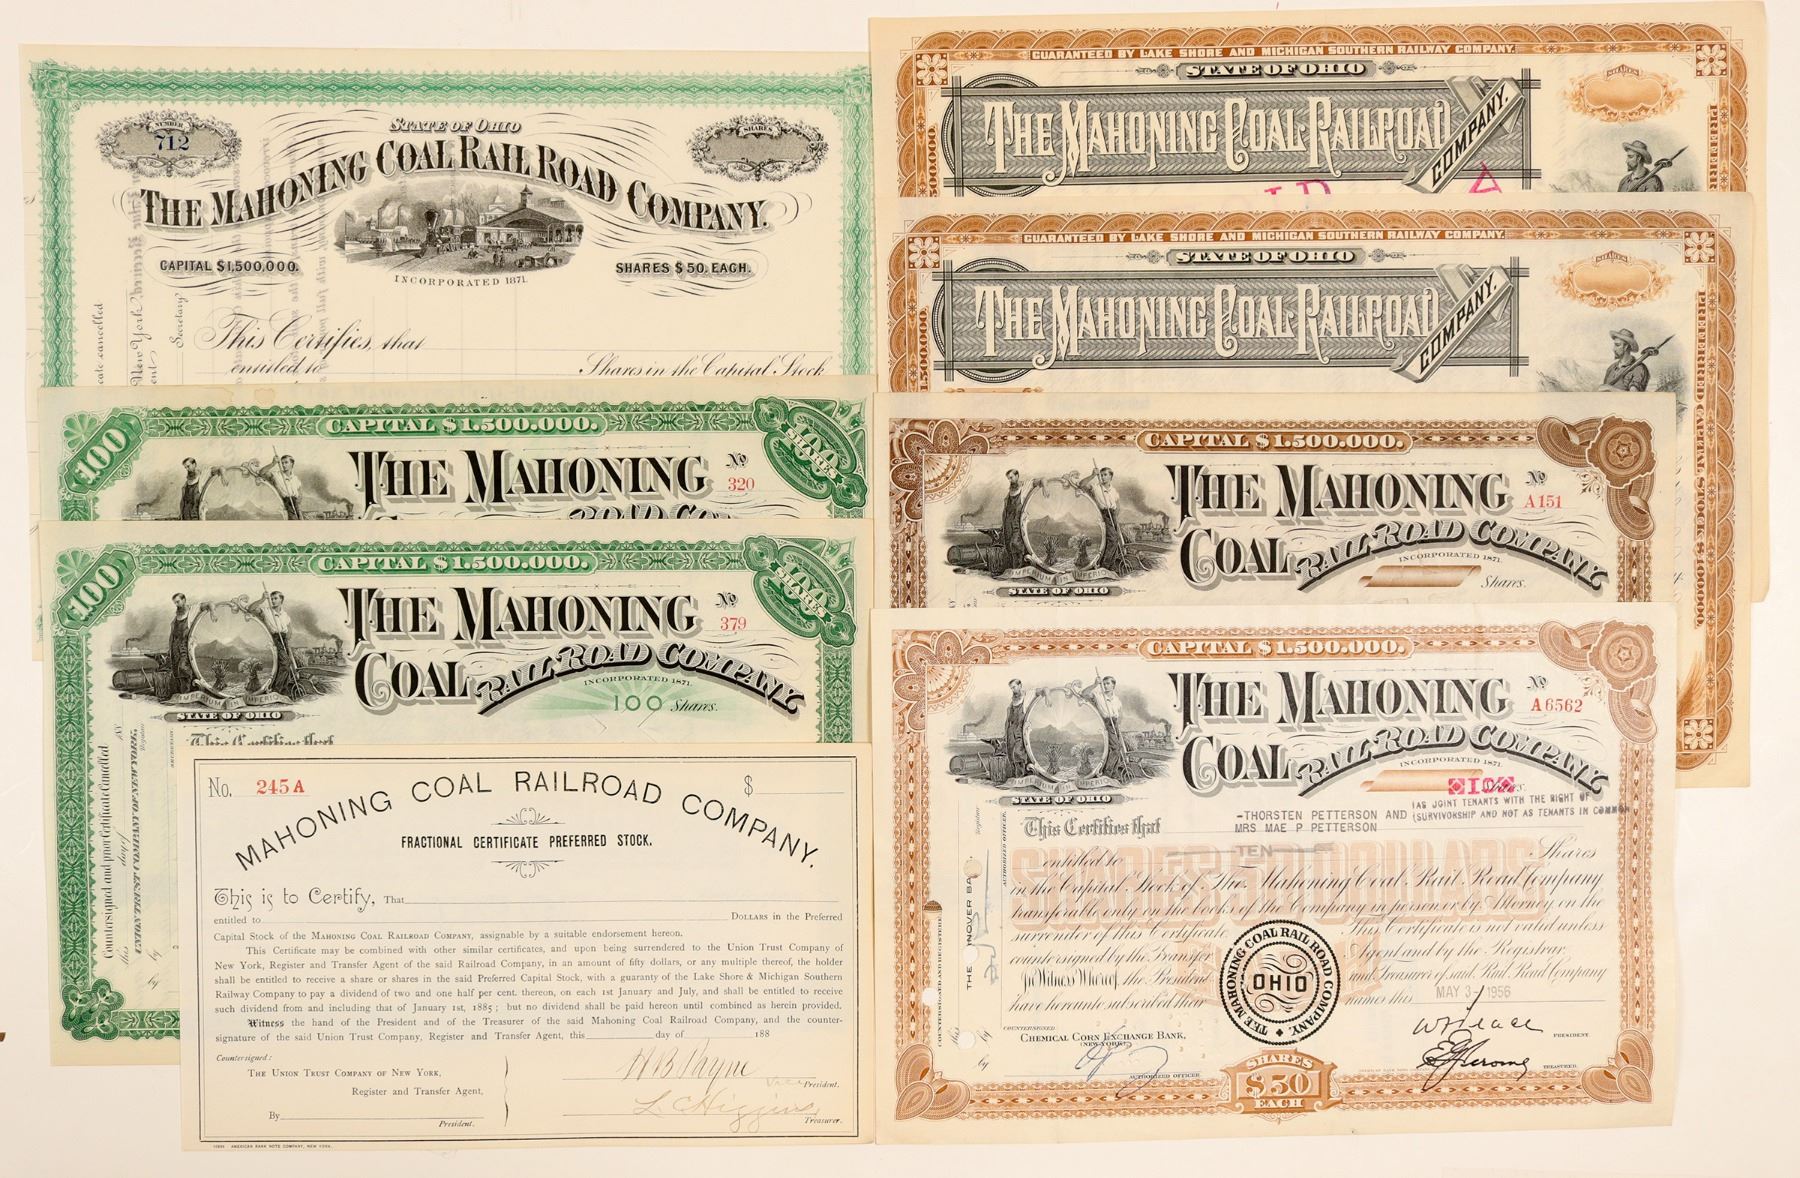 NUMBER
712
STATE OF OHIO
SHARES
THE MAHONING COAL RAIL ROAD COMPANY.
CAPITAL $1,500,000.
SHARES $50. EACH.
INCORPORATED 1871.
This Certifies, that
entitled to
Shares in the Capital Stock
cate cancelled
New York
Secretary
GUARANTEED BY LAKE SHORE AND MICHIGAN SOUTHERN RAILWAY COMPANY.
STATE OF OHIO
SHARES
THE MAHONING COAL RAILROAD
COMPANY.
GUARANTEED BY LAKE SHORE AND MICHIGAN SOUTHERN RAILWAY COMPANY.
STATE OF OHIO
SHARES
THE MAHONING COAL RAILROAD
COMPANY.
1.500.000.
PREFERRED CAPITAL STOCK $1.000.000.
100
CAPITAL $1.500.000.
100 SHARES
THE MAHONING
No 320
100
CAPITAL $1.500.000.
100 SHARES
THE MAHONING
No 379
COAL RAIL-ROAD COMPANY
INCORPORATED 1871.
100 Shares.
IMPERIUM IN IMPERIO
STATE OF OHIO
This Certifies that
Countersigned and prior Certificate Cancelled
this day of 188
UNION TRUST COMPANY OF NEW YORK.
Registrar
by
CAPITAL $1.500.000.
THE MAHONING
No A151
COAL RAIL-ROAD COMPANY
INCORPORATED 1871.
Shares.
IMPERIUM IN IMPERIO
STATE OF OHIO
CAPITAL $1.500.000.
THE MAHONING
No A6562
COAL RAIL-ROAD COMPANY
INCORPORATED 1871.
IMPERIUM IN IMPERIO
STATE OF OHIO
This Certifies that
-THORSTEN PETTERSON AND (AS JOINT TENANTS WITH THE RIGHT OF
MRS MAE P PETTERSON (SURVIVORSHIP AND NOT AS TENANTS IN COMMON
entitled to TEN Shares
in the Capital Stock of The Mahoning Coal Rail Road Company
transferable only on the books of the Company in person or by Attorney on the
surrender of this Certificate. This Certificate is not valid unless
countersigned by the Transfer Agent and by the Registrar.
In Witness Whereof, the President and Treasurer of said Rail Road Company
have hereunto subscribed their names this MAY 3-1956
THE MAHONING COAL RAIL ROAD COMPANY.
OHIO
COUNTERSIGNED
CHEMICAL CORN EXCHANGE BANK,
(NEW YORK)
by
AUTHORIZED OFFICER
PRESIDENT.
E G Jerome
TREASURER.
SHARES
$50
EACH
No. 245A
$
MAHONING COAL RAILROAD COMPANY.
FRACTIONAL CERTIFICATE PREFERRED STOCK.
This is to Certify, That
entitled to Dollars in the Preferred
Capital Stock of the Mahoning Coal Railroad Company, assignable by a suitable endorsement hereon.
This Certificate may be combined with other similar certificates, and upon being surrendered to the Union Trust Company of
New York, Register and Transfer Agent of the said Railroad Company, in an amount of fifty dollars, or any multiple thereof, the holder
shall be entitled to receive a share or shares in the said Preferred Capital Stock, with a guaranty of the Lake Shore & Michigan Southern
Railway Company to pay a dividend of two and one half per cent. thereon, on each 1st January and July, and shall be entitled to receive
such dividend from and including that of January 1st, 1885; but no dividend shall be paid hereon until combined as herein provided.
Witness the hand of the President and of the Treasurer of the said Mahoning Coal Railroad Company, and the counter-
signature of the said Union Trust Company, Register and Transfer Agent, this day of 188
Countersigned:
The Union Trust Company of New York,
Register and Transfer Agent,
By
President.
H B Payne
Vice President.
L C Higgins
Treasurer.
AMERICAN BANK NOTE COMPANY, NEW YORK.